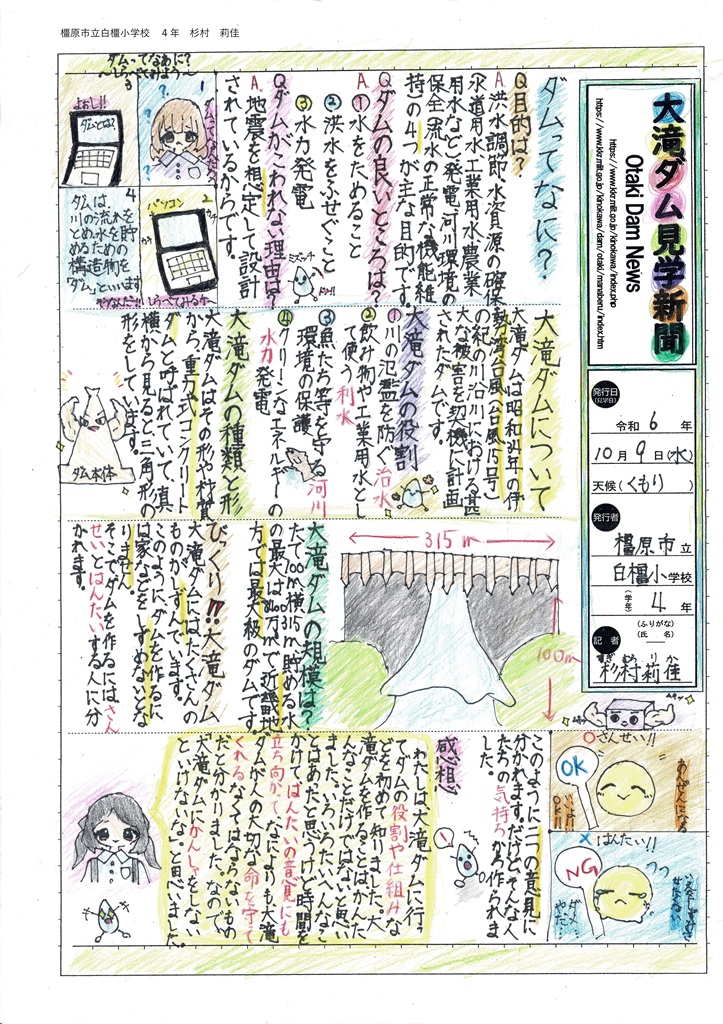 橿原市立白橿小学校　4年　杉村　莉佳
大滝ダム見学新聞
Otaki Dam News
https://www.kkr.mlit.go.jp/kinokawa/index.php
https://www.kkr.mlit.go.jp/kinokawa/dam/otaki/manaberu/index.htm
発行日
(見学日)
令和 6 年
10月 9日(水)
天候(くもり)
発行者
橿原市立
白橿小学校
(学年) 4年
記者
(ふりがな)
(氏 名)
すぎむらりか
杉村莉佳
ダムってなに?
Q目的は?
A.洪水調節、水資源の確保
(水道用水、工業用水、農業
用水など)、発電、河川環境の
保全(流水の正常な機能維
持)の4つが主な目的です。
Qダムの良いところは?
A.①水をためること
②洪水をふせぐこと
③水力発電
Qダムがこわれない理由は?
A.地震を想定して設計
されているからです。
ダムってなあに?
〜しらべてみよう〜
1
ダムってなんだろ
2
パソコン
しらべてみるか〜
3
よぉし!!
ダムとは?
4
ダムは、
川の流れを
とめ、水を貯
めるための
構造物を
「ダム」といいます
そうなんだ!!
大滝ダムについて
大滝ダムは昭和34年の伊
勢湾台風(台風15号)
の紀の川沿川における甚
大な被害を契機に計画
されたダムです。
大滝ダムの役割
①川の氾濫を防ぐ治水
②飲み物や工業用水とし
て使う利水
③魚たち等を守る河川
環境の保護
④クリーンなエネルギーの
水力発電
大滝ダムの種類と形
大滝ダムはその形や材質
から、重力式コンクリート
ダムと呼ばれていて、真
横から見ると三角形の
形をしています。
ダム本体
315m
100m
大滝ダムの規模は?
たて100m横315m貯める水
の最大は8400万m³で近畿地
方では最大級のダムです。
びっくり!!大滝ダム
大滝ダムにはたくさんの
ものがしずんでいます。
このようにダムを作るに
は家などをしずめないとな
りません。
そこでダムを作るにはさん
せいとはんたいする人に分
かれます。
○さんせい!!
OK
あんぜんになる
×はんたい!!
NG
このように二つの意見に
分かれます。だけど、そんな人
たちの気持ちから作られま
した。
感想
わたしは大滝ダムに行っ
てダムの役割や仕組みな
どを初めて知りました。大
滝ダムを作ることはかんた
んなことだけではないと思い
ました。いろいろたいへんなこ
とはあだと思うけど時間を
かけて、はんたいの意見にも
立ち向かて、なによりも大滝
ダムが人の大切な命を守て
くれるなくてはならないもの
だと分かりました。なので、
大滝ダムにかんしゃをしない
といけないな。と思いました。